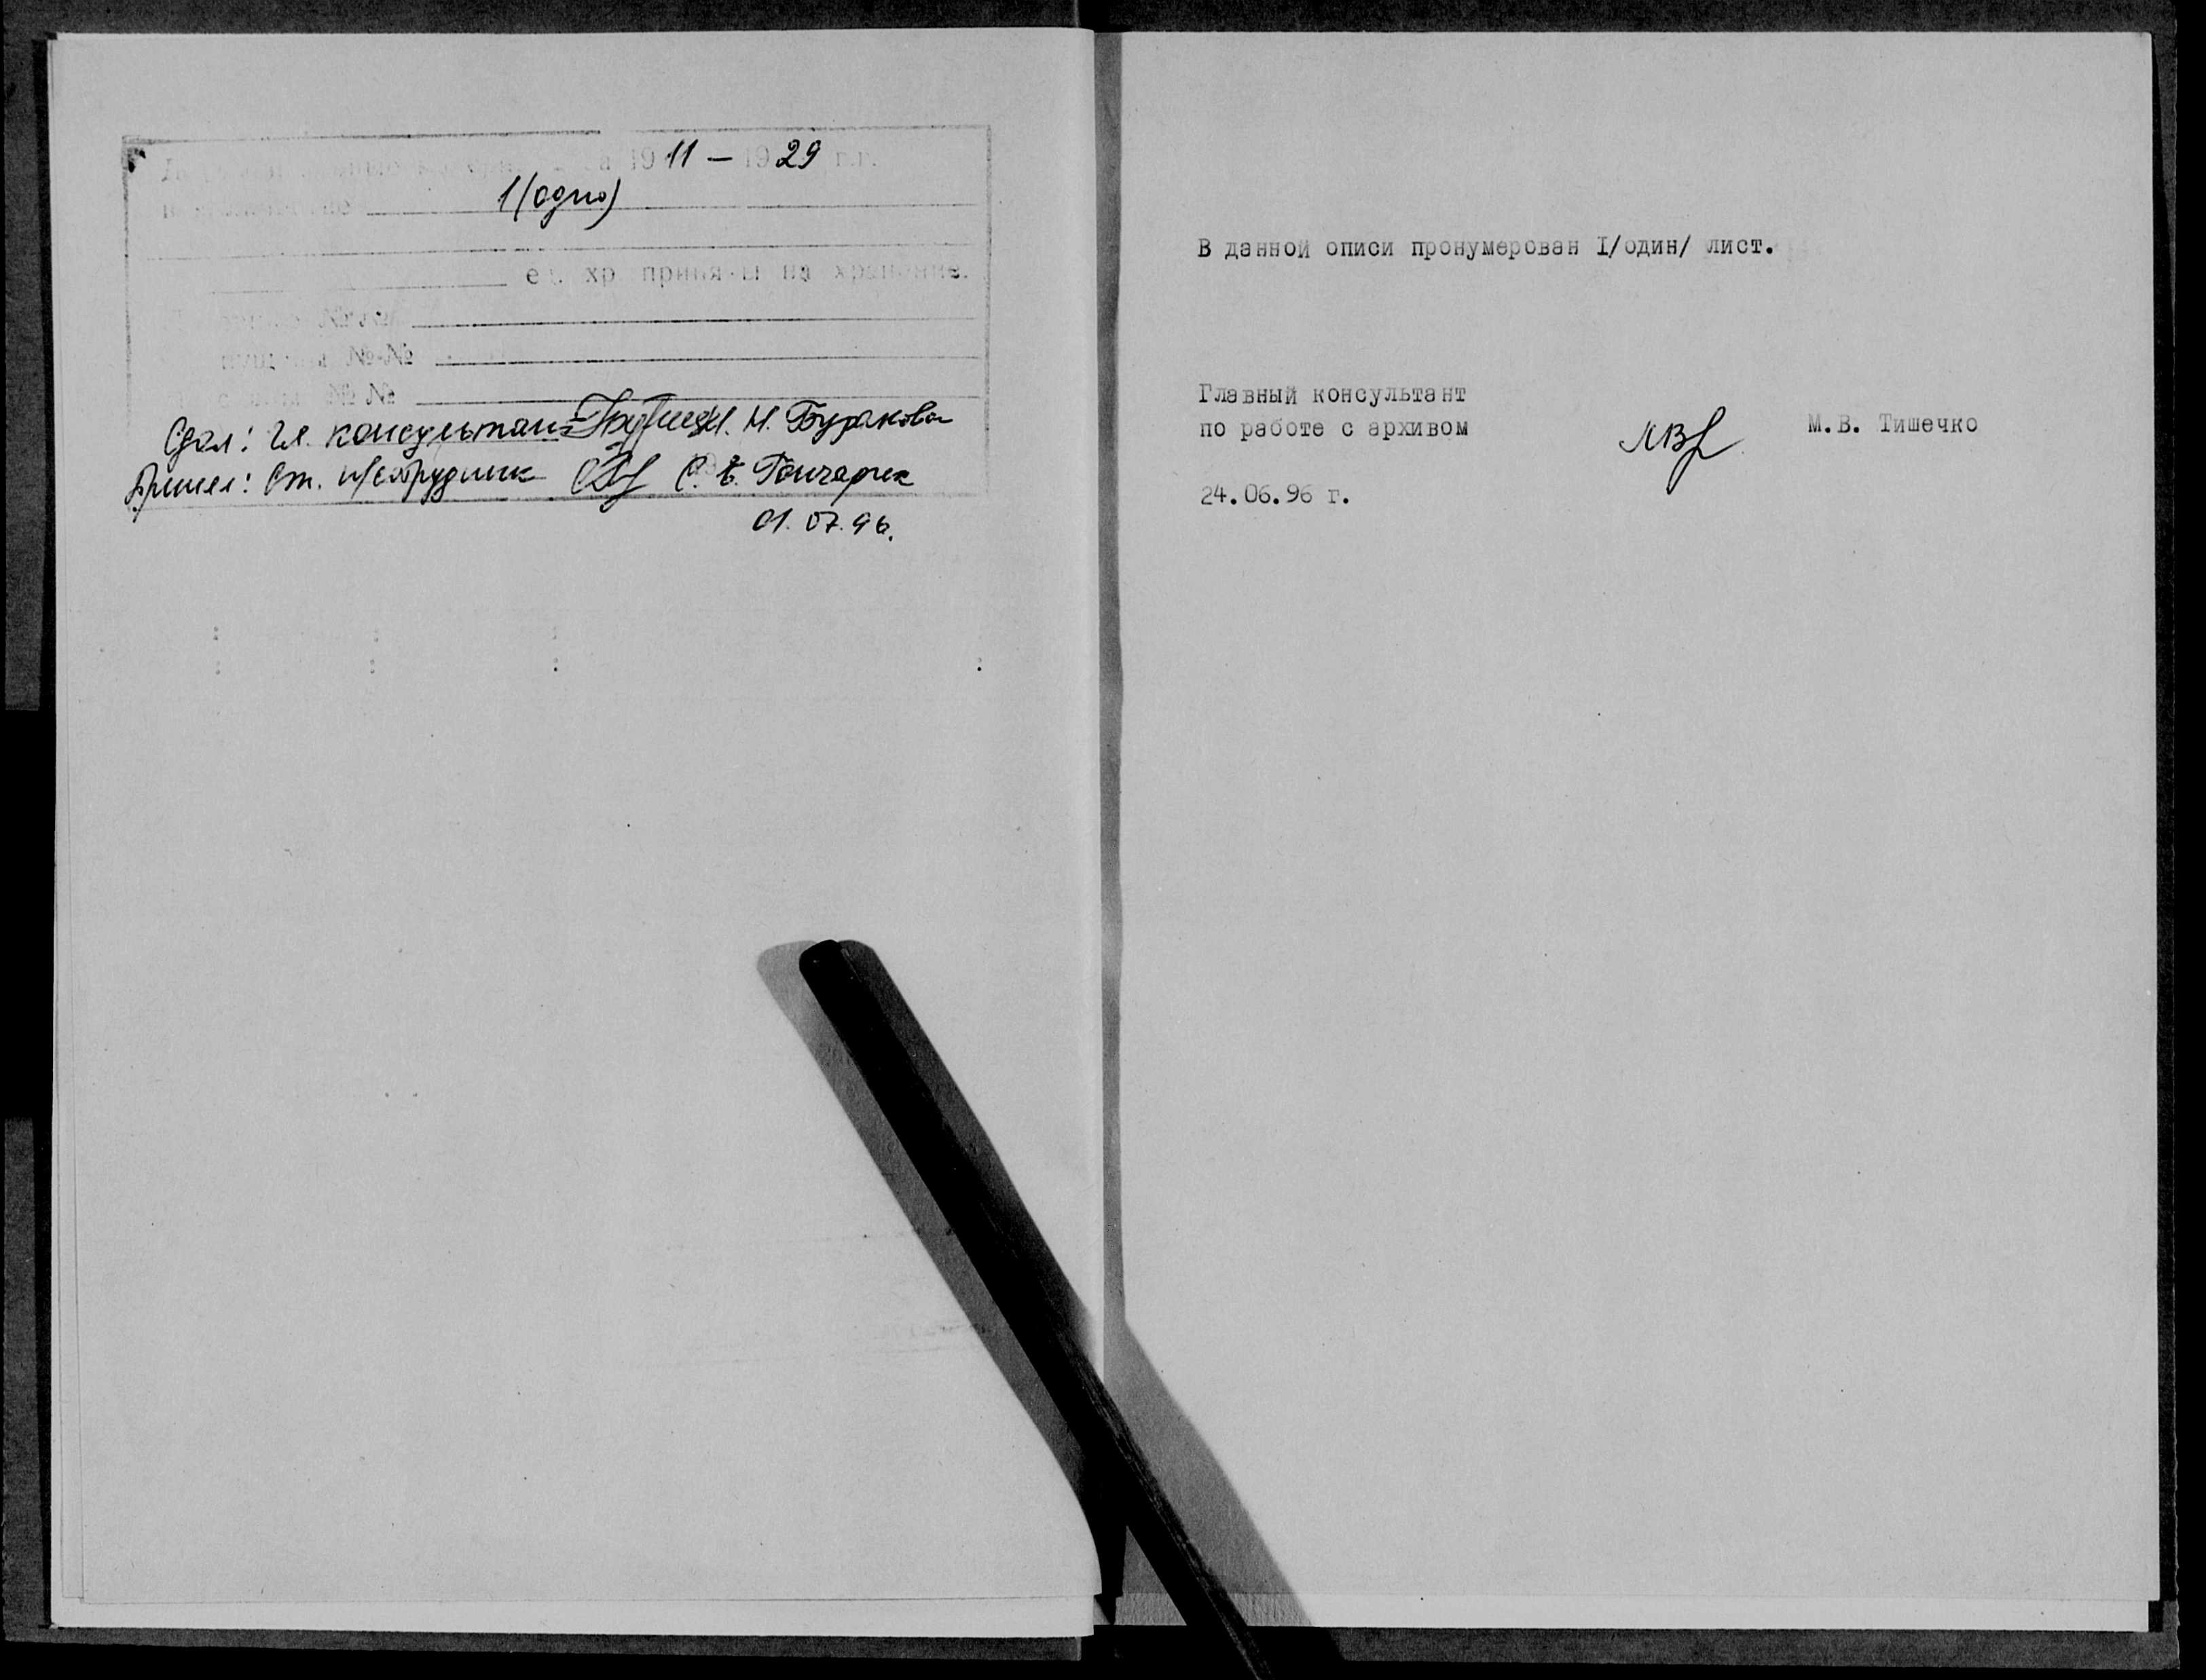 19 11 – 19 29 г.г.
1 (одно)
хр. приняты на хранение.
№ №
№ №
№ №
Сдал: Гл. консультант Н. Н. Буракова
Принял: Ст. н/сотрудник С. Е. Гончарик
01.07.96.
В данной описи пронумерован I/один/ лист.
Главный консультант
по работе с архивом М.В. Тишечко
24.06.96 г.